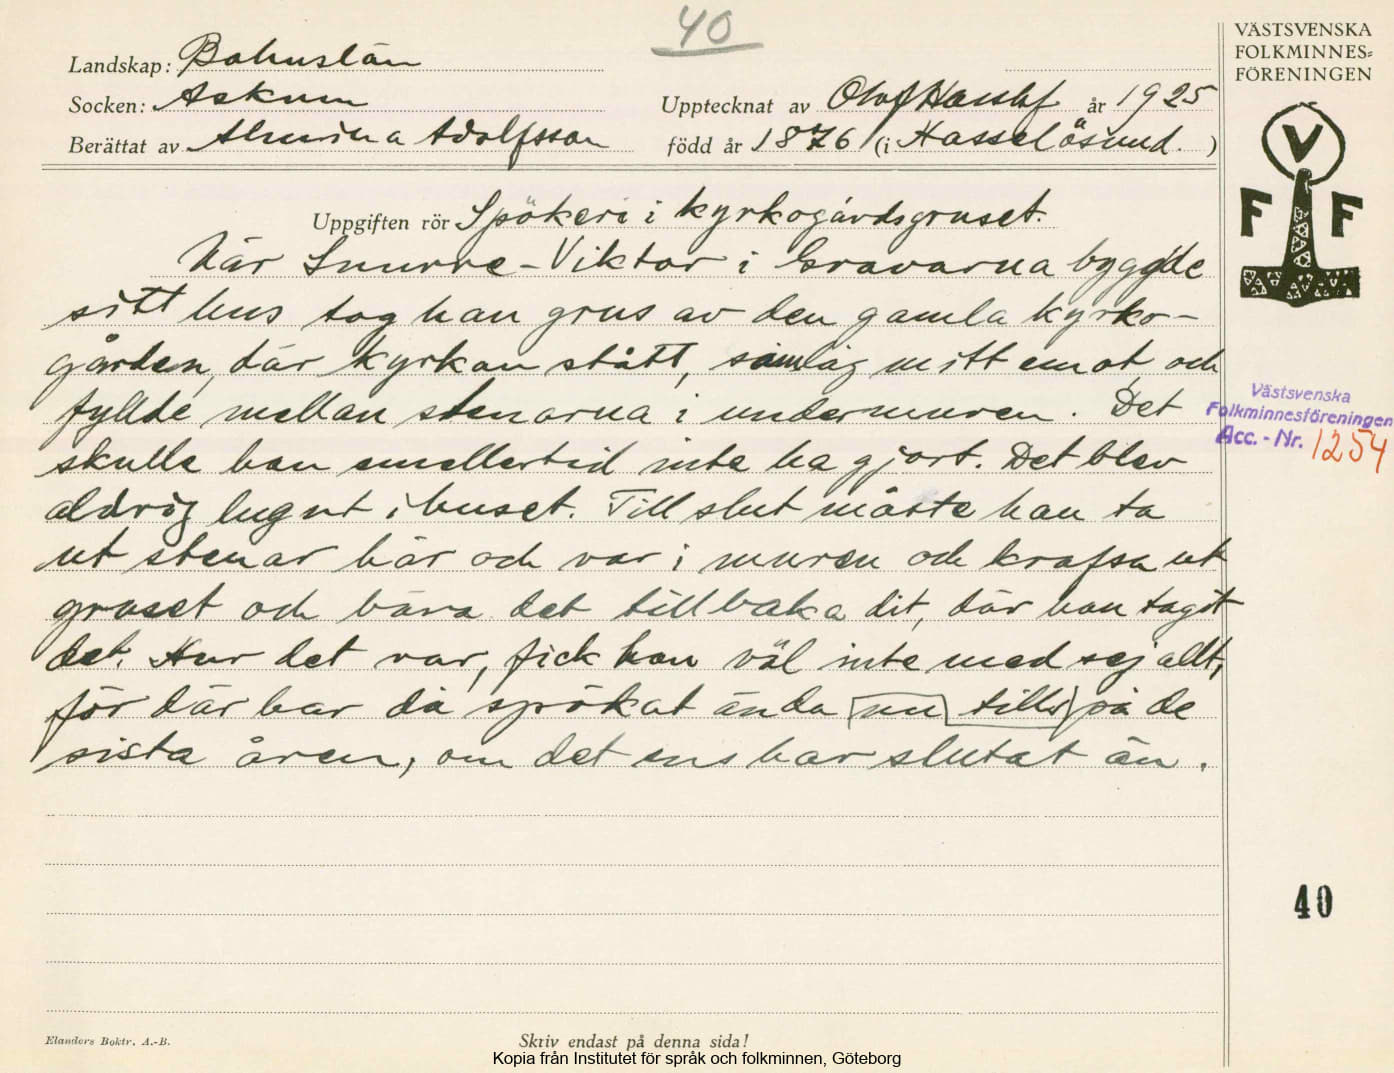 40
VÄSTSVENSKA
FOLKMINNES=
FÖRENINGEN
Landskap: Bohuslän
Socken: Askum
Upptecknat av Olof Hasslöf år 1925
Berättat av Almina Adolfsson född år 1876 (i Hasselösund.)
V
F F
Uppgiften rör Spökeri i kyrkogårdsgruset.
När Snurre-Viktor i Gravarna byggde
sitt hus tog han grus av den gamla kyrko-
gården, där kyrkan stått, som låg mitt emot och
fyllde mellan stenarna i undermuren. Det
skulle han emellertid inte ha gjort. Det blev
aldrig lugnt i huset. Till slut måste han ta
ut stenar här och var i muren och krafsa ut
gruset och bära det tillbaka dit, där han tagit
det. Hur det var, fick han väl inte med sej allt,
för där har då spökat ända nu tills på de
sista åren, om det ens har slutat än.
Västsvenska
Folkminnesföreningen
Acc.-Nr. 1254
40
Elanders Boktr. A.-B.
Skriv endast på denna sida!
Kopia från Institutet för språk och folkminnen, Göteborg